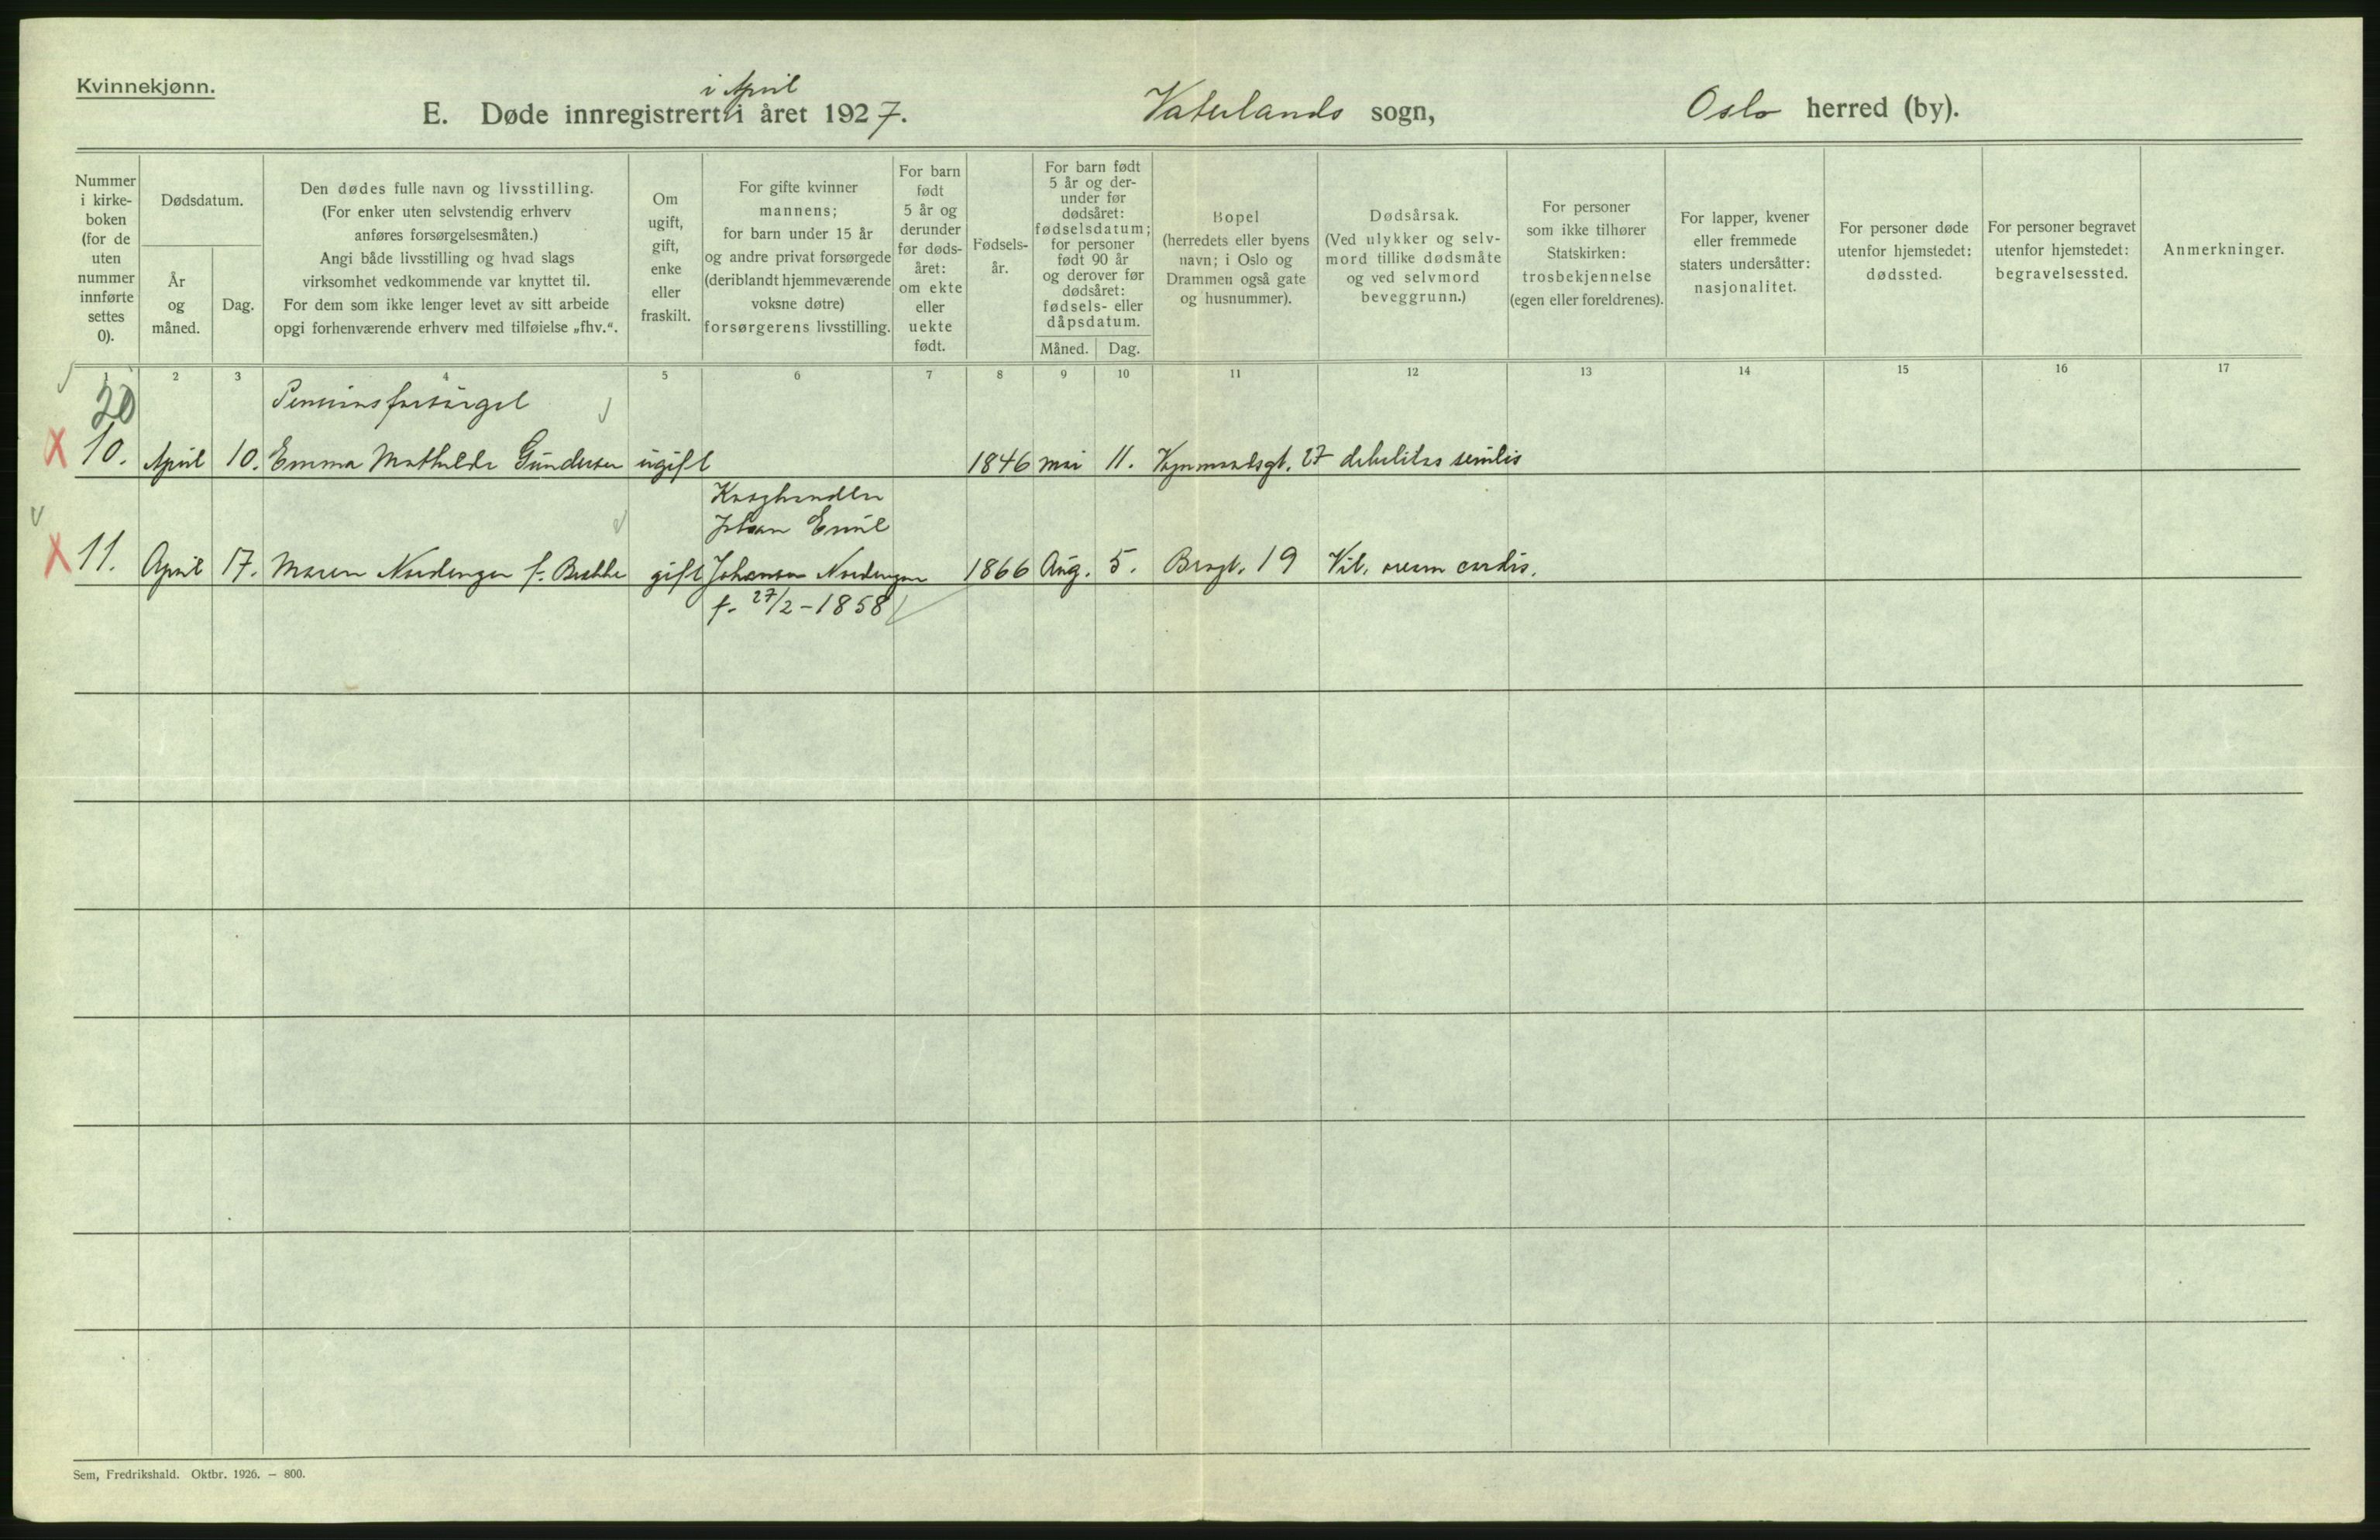 Kvinnekjønn.
i April
E. Døde innregistrert i året 1927.
Vaterlands sogn,
Oslo herred (by).
Nummer
i kirke-
boken
(for de
uten
nummer
innførte
settes
0).
Dødsdatum.
År
og
måned.
Dag.
Den dødes fulle navn og livsstilling.
(For enker uten selvstendig erhverv
anføres forsørgelsesmåten.)
Angi både livsstilling og hvad slags
virksomhet vedkommende var knyttet til.
For dem som ikke lenger levet av sitt arbeide
opgi forhenværende erhverv med tilføielse „fhv.“.
Om
ugift,
gift,
enke
eller
fraskilt.
For gifte kvinner
mannens;
for barn under 15 år
og andre privat forsørgede
(deriblandt hjemmeværende
voksne døtre)
forsørgerens livsstilling.
For barn
født
5 år og
derunder
før døds-
året:
om ekte
eller
uekte
født.
Fødsels-
år.
For barn født
5 år og der-
under før
dødsåret:
fødselsdatum;
for personer
født 90 år
og derover før
dødsåret:
fødsels- eller
dåpsdatum.
Måned.
Dag.
Bopel
(herredets eller byens
navn; i Oslo og
Drammen også gate
og husnummer).
Dødsårsak.
(Ved ulykker og selv-
mord tillike dødsmåte
og ved selvmord
beveggrunn.)
For personer
som ikke tilhører
Statskirken:
trosbekjennelse
(egen eller foreldrenes).
For lapper, kvener
eller fremmede
staters undersåtter:
nasjonalitet.
For personer døde
utenfor hjemstedet:
dødssted.
For personer begravet
utenfor hjemstedet:
begravelsessted.
Anmerkninger.
1 2 3 4 5 6 7 8 9 10 11 12 13 14 15 16 17
20
Pensionsforsørget
X 10. April 10. Emma Mathilde Gundersen ugift 1846 mai 11. 27 debilitas senilis
Johan Emil
X 11. April 17. Maren Nordengen f. gift Johansen Nordengen 1866 Aug. 5. Brogt. 19 Vit. cordis.
f. 27/2-1858
Sem, Fredrikshald. Oktbr. 1926. – 800.